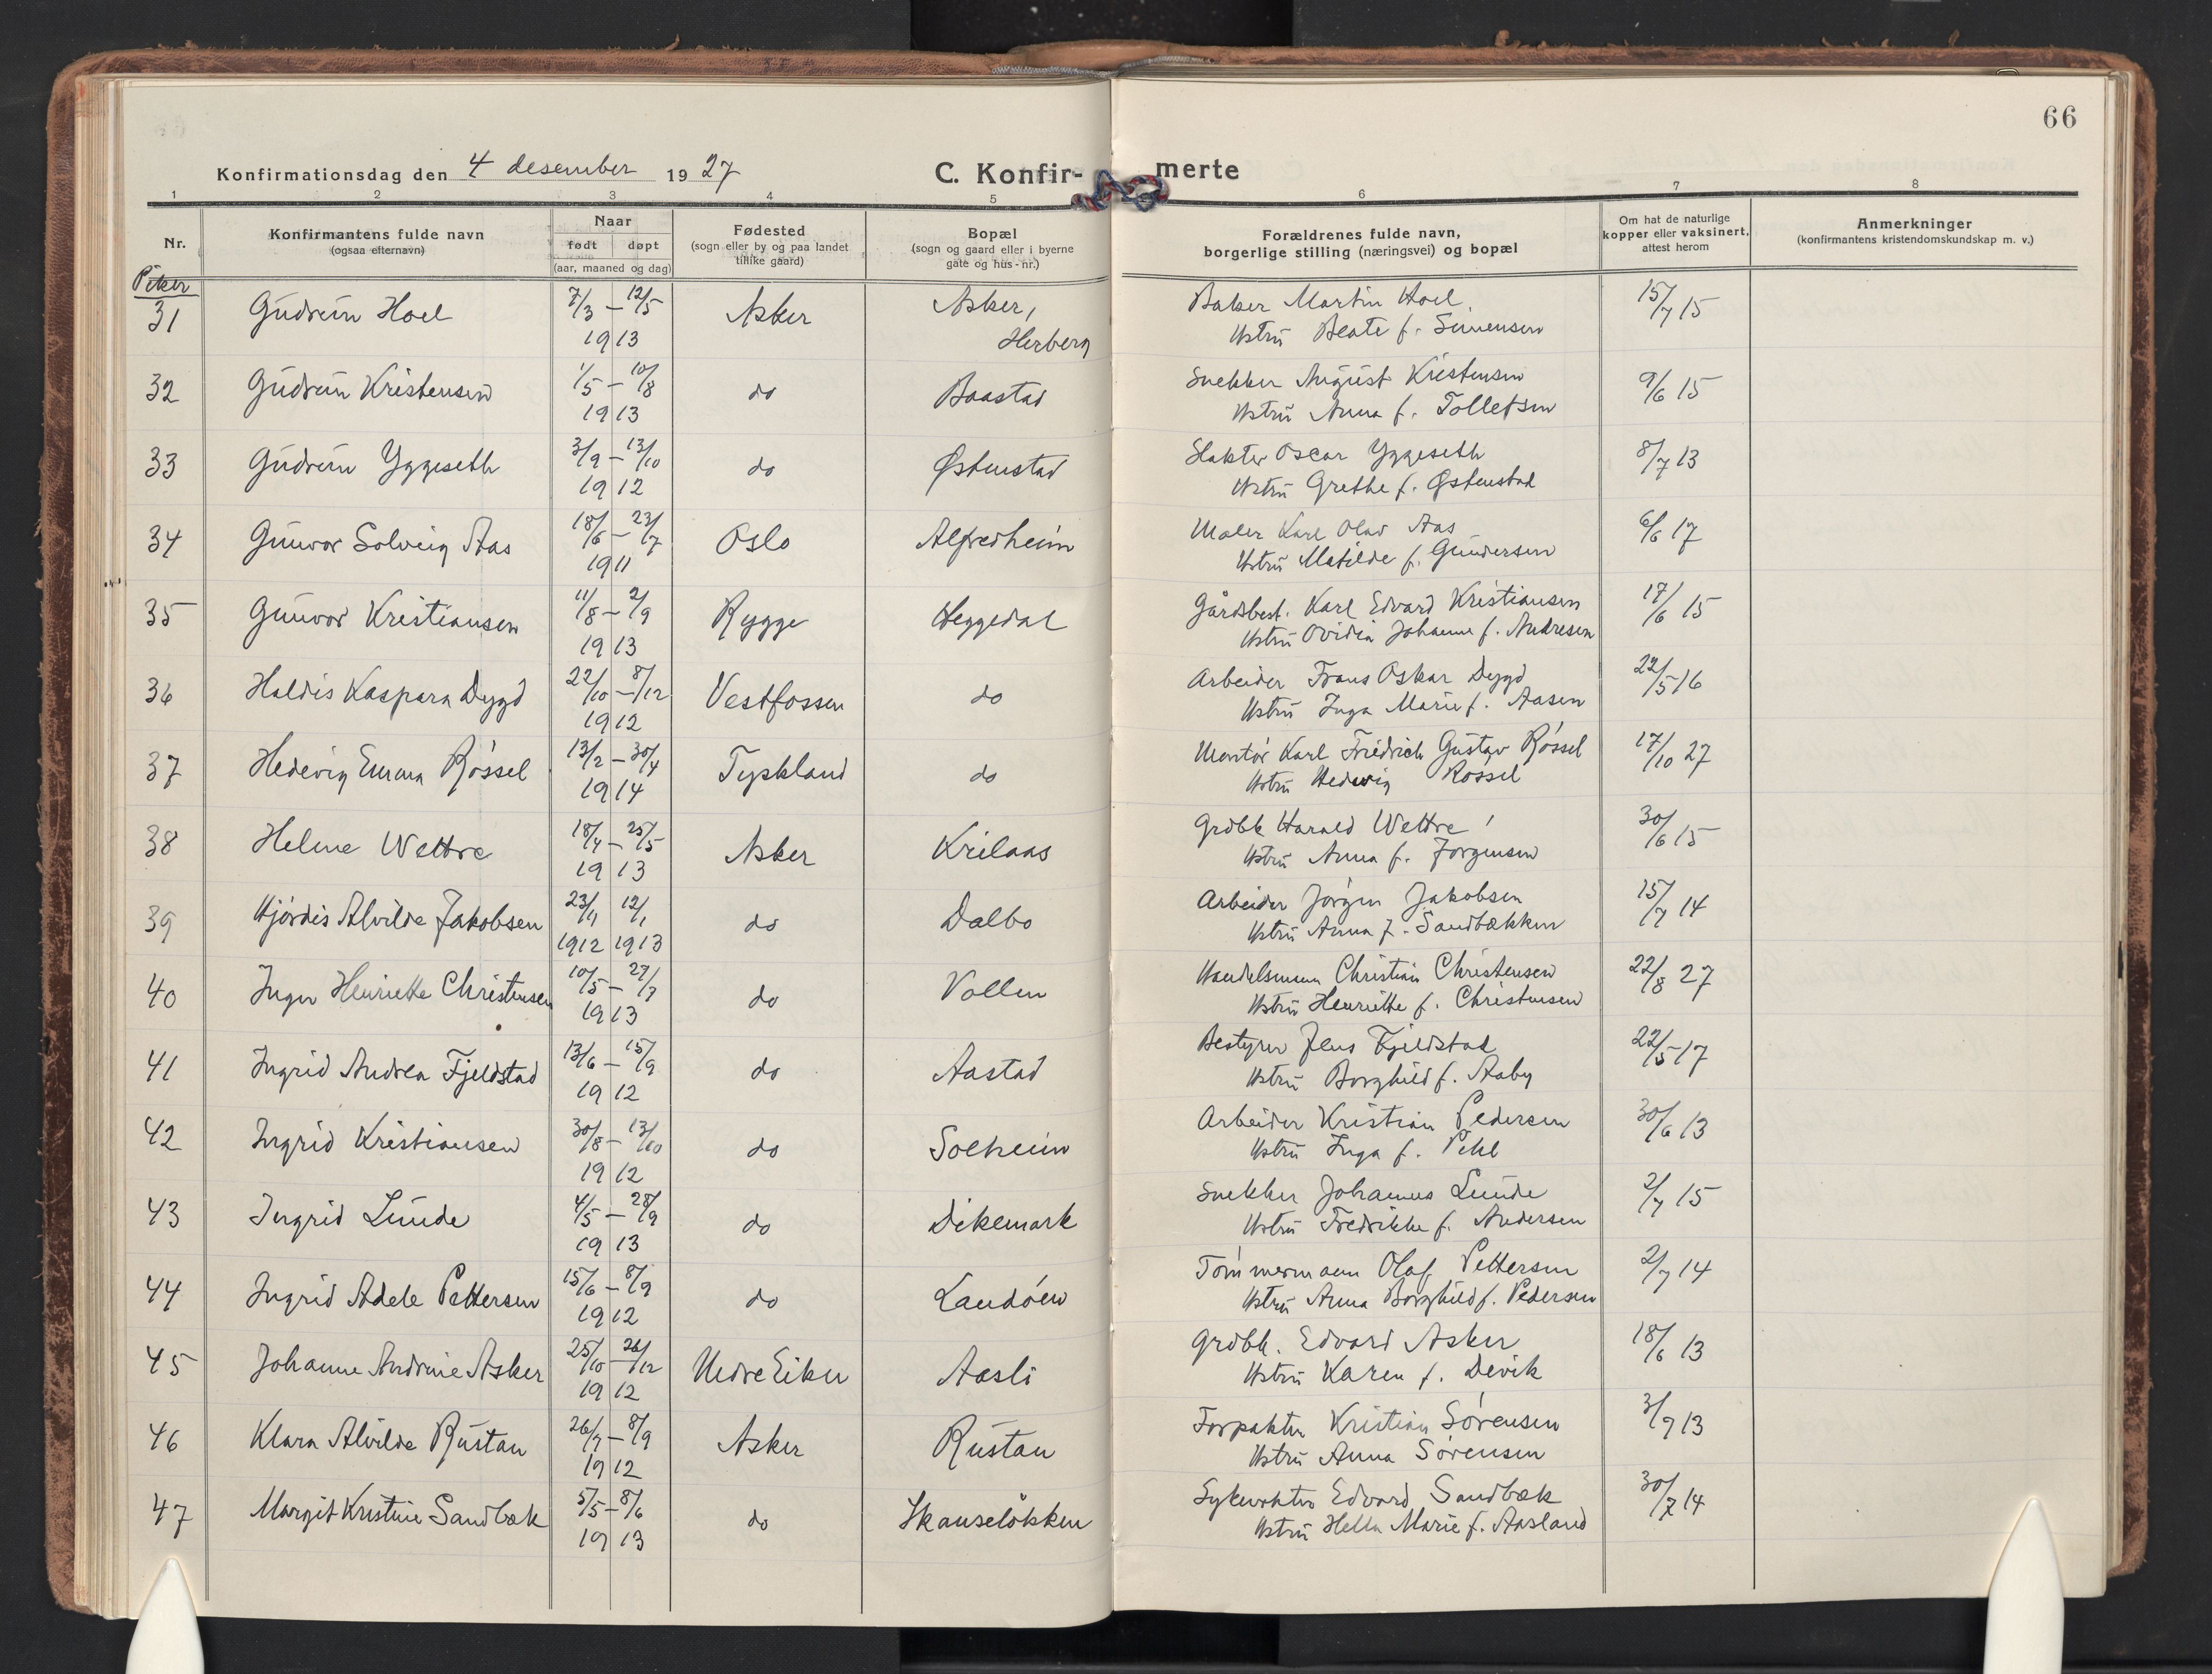 66
Konfirmationsdag den 4 desember 1927
C. Konfir- merte
1 2 3 4 5 6 7 8
Nr.
Konfirmantens fulde navn
(ogsaa efternavn)
Naar
født døpt
(aar, maaned og dag)
Fødested
(sogn eller by og paa landet
tillike gaard)
Bopæl
(sogn og gaard eller i byerne
gate og hus-nr.)
Forældrenes fulde navn,
borgerlige stilling (næringsvei) og bopæl
Om hat de naturlige
kopper eller vaksinert,
attest herom
Anmerkninger
(konfirmantens kristendomskundskap m. v.)
Piker
31 Gudrun Hoel 7/3 – 12/5 1913 Asker Asker, Herberg Baker Martin Hoel 15/7 15
Hstru Beate f. Simensen
32 Gudrun Kristensen 1/5 – 10/8 1913 do Baastad Snekker August Kristensen 9/6 15
Hstru Anna f. Tollefsen
33 Gudrun Yggeseth 3/9 – 13/10 1912 do Østenstad Slakter Oscar Yggeseth 8/7 13
Hstru Grethe f. Østenstad
34 Gunvor Solveig Aas 18/6 – 23/7 1911 Oslo Alfredheim Maler Karl Olav Aas 6/6 17
Hstru Matilde f. Gundersen
35 Gunvor Kristiansen 11/8 – 2/9 1913 Rygge Heggedal Gårdsbest. Karl Edvard Kristiansen 17/6 15
Hstru Ovidia Johanne f. Andresen
36 Haldis Kaspara Dygd 22/10 – 8/12 1912 Vestfossen do Arbeider Frans Oskar Dygd 22/5 16
Hstru Inga Marie f. Aasen
37 Hedevig Emma Róssel 13/2 – 30/4 1914 Tyskland do Montór Karl Friedrich Gustav Róssel 17/10 27
Hstru Hedwig Rossel
38 Helene Wettre 18/4 – 25/5 1913 Asker Krilaas Grdbk Harald Wettre 30/6 15
Hstru Anna f. Jorgensen
39 Hjórdis Alvilde Jakobsen 23/11 12/1 1912 1913 do Dalbo Arbeider Jórgen Jakobsen 15/7 14
Hstru Anna f. Sandbækken
40 Inger Henriette Christensen 10/5 – 27/7 1913 do Vollen Handelsmann Christian Christensen 22/8 27
Hstru Henriette f. Christensen
41 Ingrid Andrea Fjeldstad 13/6 – 15/9 1912 do Aastad Bestyrer Jens Fjeldstad 22/5 17
Hstru Borghild f. Aaby
42 Ingrid Kristiansen 30/8 – 13/10 1912 do Solheim Arbeider Kristian Pedersen 30/6 13
Hstru Inga f. Pihl
43 Ingrid Lunde 4/5 – 28/9 1913 do Dikemark Snekker Johannes Lunde 2/7 15
Hstru Fredrikke f. Andersen
44 Ingrid Adele Pettersen 15/6 – 8/9 1912 do Landóen Tómmermann Olaf Pettersen 2/7 14
Hstru Anna Borghild f. Pedersen
45 Johanne Andrine Asker 25/10 – 26/12 1912 Nedre Eiker Aasli Grdbk. Edvard Asker 18/6 13
Hstru Karen f. Devik
46 Klara Alvilde Rustan 26/7 – 8/9 1912 Asker Rustan Forpakter Kristian Sórensen 3/7 13
Hstru Anna Sórensen
47 Margit Kristine Sandbæk 5/5 – 8/6 1913 do Skauselókken Sykevokter Edvard Sandbæk 30/7 14
Hstru Hella Marie f. Aasland